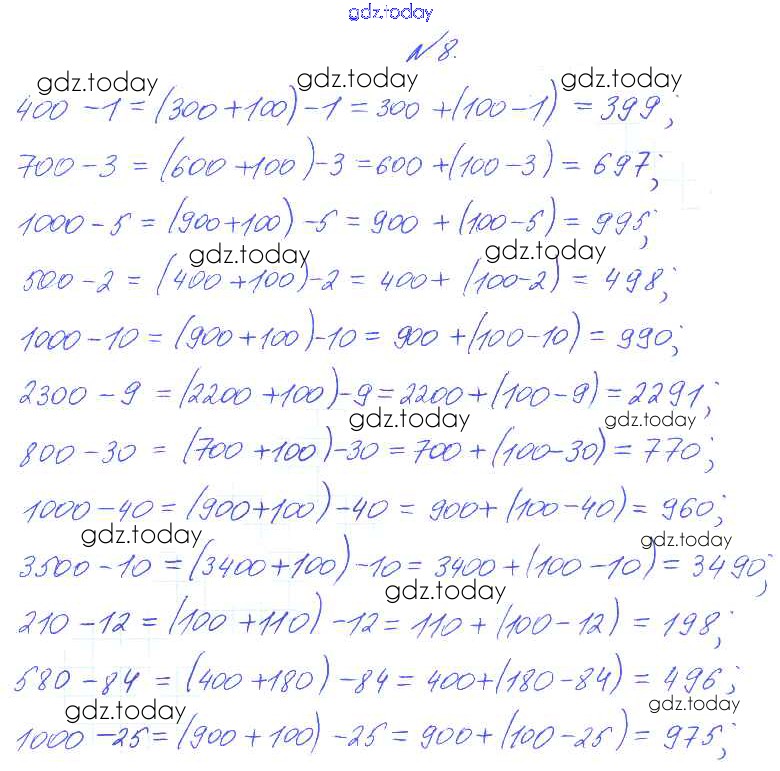 gdz.today
№8.
gdz.today gdz.today gdz.today
400 - 1 = (300 + 100) - 1 = 300 + (100 - 1) = 399;
700 - 3 = (600 + 100) - 3 = 600 + (100 - 3) = 697;
1000 - 5 = (900 + 100) - 5 = 900 + (100 - 5) = 995;
gdz.today gdz.today
500 - 2 = (400 + 100) - 2 = 400 + (100 - 2) = 498;
1000 - 10 = (900 + 100) - 10 = 900 + (100 - 10) = 990;
2300 - 9 = (2200 + 100) - 9 = 2200 + (100 - 9) = 2291;
gdz.today gdz.today
800 - 30 = (700 + 100) - 30 = 700 + (100 - 30) = 770;
1000 - 40 = (900 + 100) - 40 = 900 + (100 - 40) = 960;
gdz.today gdz.today
3500 - 10 = (3400 + 100) - 10 = 3400 + (100 - 10) = 3490;
gdz.today
210 - 12 = (100 + 110) - 12 = 110 + (100 - 12) = 198;
580 - 84 = (400 + 180) - 84 = 400 + (180 - 84) = 496;
gdz.today gdz.today
1000 - 25 = (900 + 100) - 25 = 900 + (100 - 25) = 975;